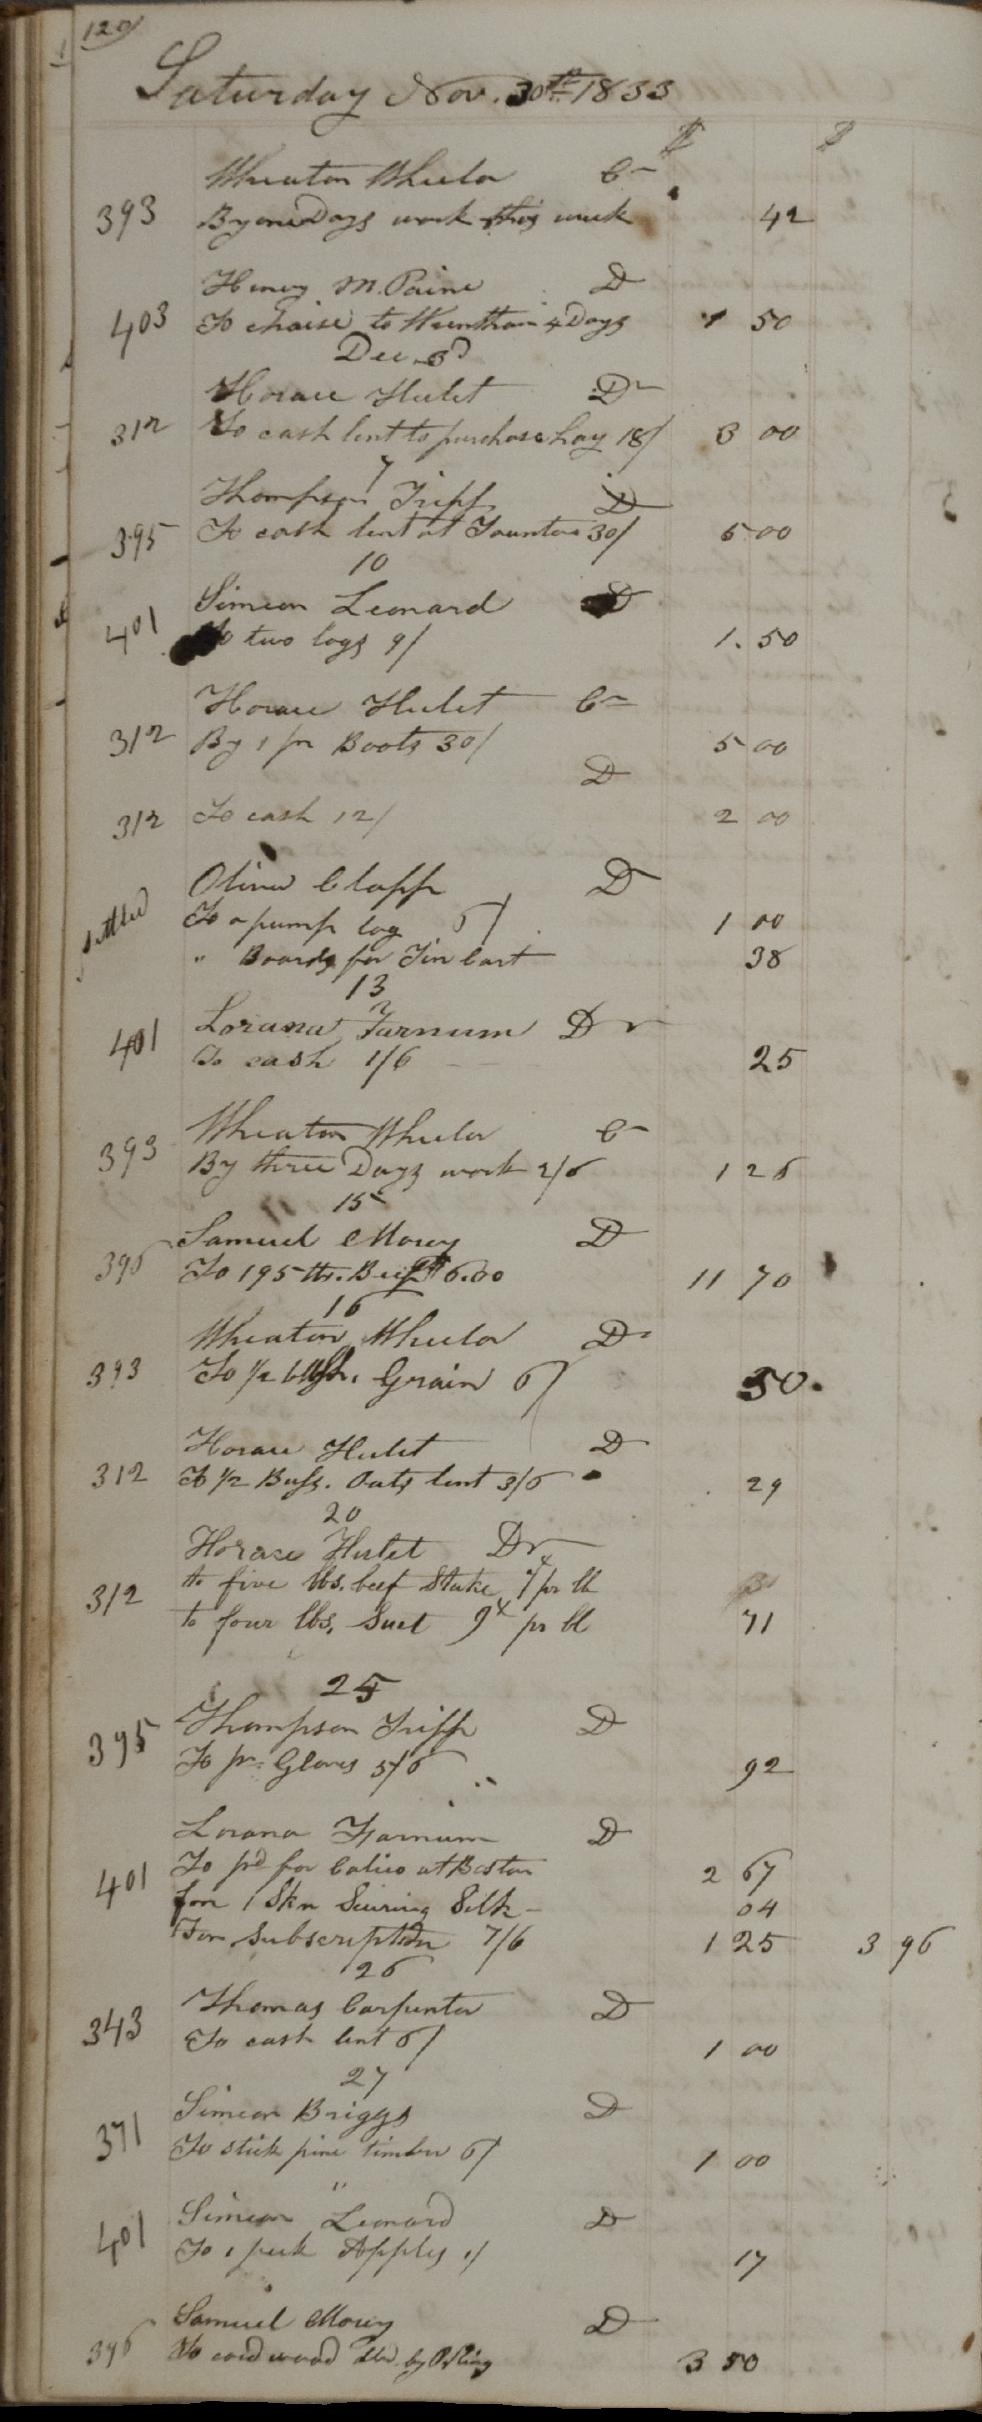 120
Saturday Nov. 30th 1833
$ $
Wheaton Wheelor Cr
393 By one Days work this week 42
Henry M. Paine D
403 To chaise to Wrentham 4 Days 1 50
Dec. 3d
Horace Hulet Dr
312 To cash lent to purchase hay 18/ 3 00
7
Thompson Tripp D
395 To cash lent at Taunton 30/ 5 00
10
Simeon Leonard D
401 To two logs 9/ 1.50
Horace Hulet Cr
312 By 1 pr Boots 30/ 5 00
D
312 To cash 12/ 2 00
Oliver Clapp D
settled To a pump log 6/ 1 00
" Boards for Tin Cart 38
13
Lorana Farnum Dr
401 To cash 1/6 25
Wheaton Wheelor Cr
393 By three Days work 2/6 1 26
15
Samuel Morey D
396 To 195 lbs. Beef $6.00 11 70
16
Wheaton Wheelor Dr
393 To 1/2 bush. Grain 6/ 50.
Horace Hulet D
312 To 1/2 Bush. Oats lent 3/6 29
20
Horace Hulet Dr
312 to five lbs. beef Stake 7 pr lb
to four lbs. Suet 9 pr lb 71
25
Thompson Tripp D
395 To pr. Gloves 5/6 92
Lorana Farnum D
401 To pd for Calico at Boston 2 67
for 1 Skn Sewing Silk - 04
For Subscription 7/6 1 25 3 96
26
Thomas Carpenter D
343 To cash lent 6/ 1 00
27
Simeon Briggs D
371 To stick pine timber 6/ 1 00
"
Simeon Leonard D
401 To 1 peck Apples 1/ 17
Samuel Morey D
396 To cord wood by 3 50